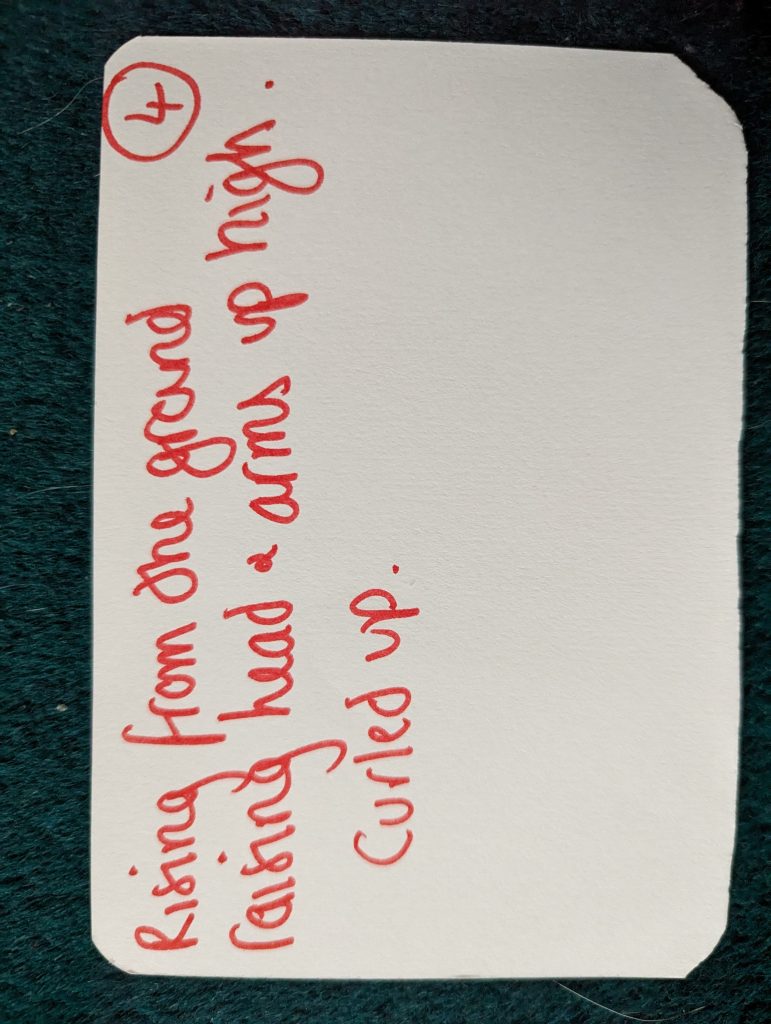 4
Rising from the ground
raising head & arms up high.
Curled up.